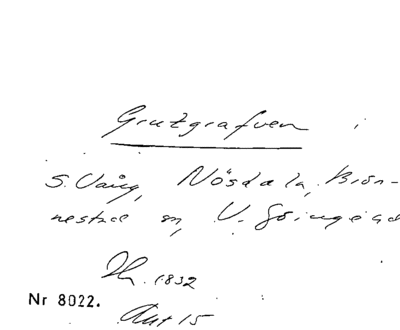 Grutzgrafven i
S. Vång, Nösdala, Brön-
nestad sn, V. Göinge hd
1832
Nr 8022.
Aut 15